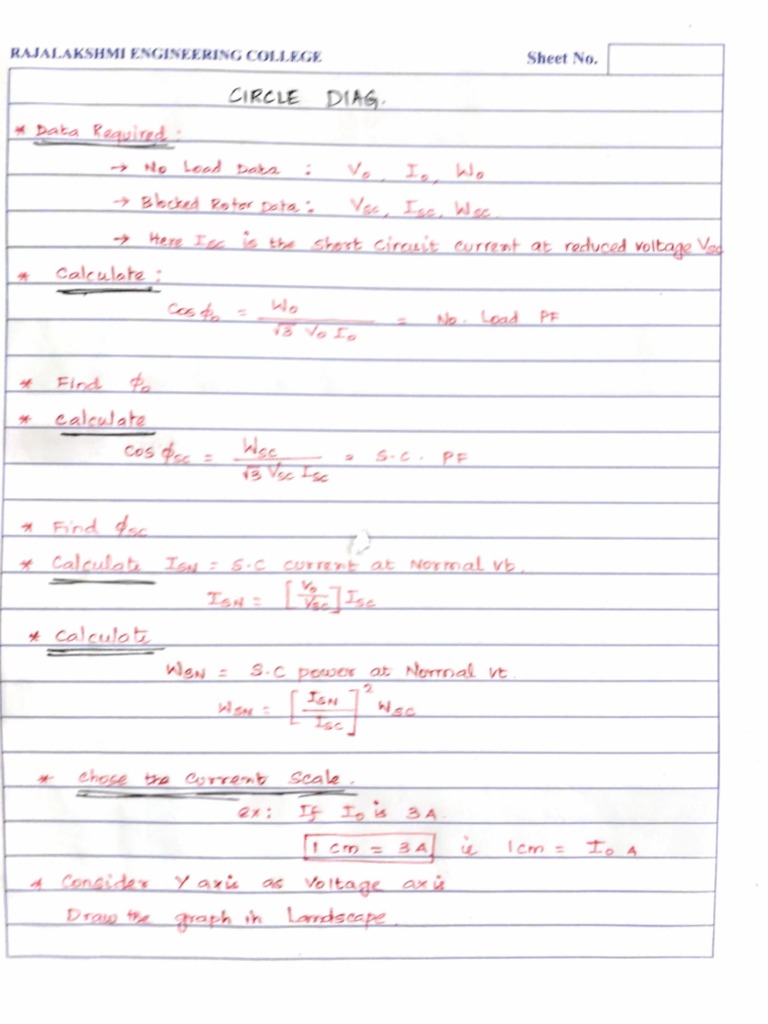 RAJALAKSHMI ENGINEERING COLLEGE Sheet No.
CIRCLE DIAG.
* Data Required :
→ No Load Data : V₀, I₀, W₀
→ Blocked Rotor Data : Vsc, Isc, Wsc
→ Here Isc is the short circuit current at reduced voltage Vsc
* Calculate :
Cos ϕ₀ = W₀ / √3 V₀ I₀ = No. Load PF
* Find ϕ₀
* Calculate
Cos ϕsc = Wsc / √3 Vsc Isc = S.C. PF
* Find ϕsc
* Calculate ISN = S.C current at Normal Vt.
ISN = [V₀ / Vsc] Isc
* Calculate
WSN = S.C power at Normal Vt.
WSN = [ISN / Isc]² Wsc
* Chose the Current Scale.
ex: If I₀ is 3A.
1 cm = 3A ie 1cm = I₀ A
* Consider Y axis as Voltage axis
Draw the graph in Landscape.